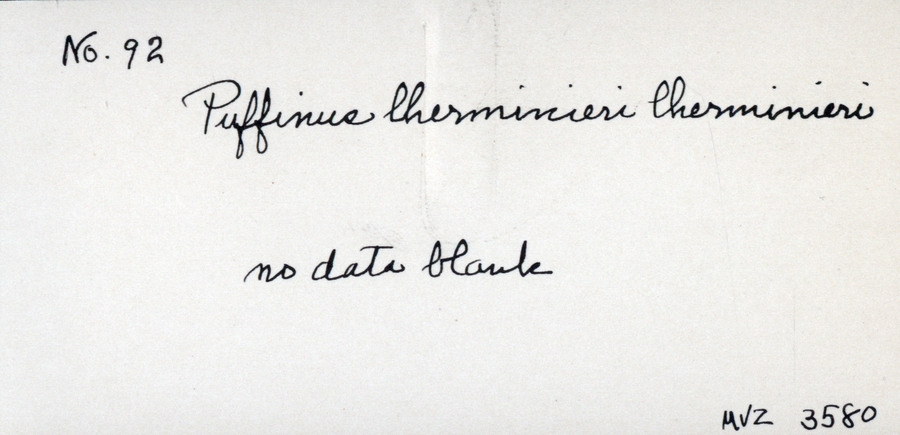 No. 92
Puffinus lherminieri lherminieri
no data blank
MVZ 3580